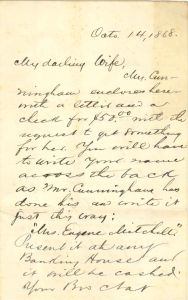 Octo 14, 1868.
My darling Wife,
Mr. Cun-
ningham encloses here-
with a letter and a
check for $50.00 with the
request to get something
for her. You will have
to write your name
across the back
as Mr. Cunningham has
done his so write it
just this way:
"Mrs. Eugene Mitchell"
Present it at any
Banking House and
it will be cashed.
Your